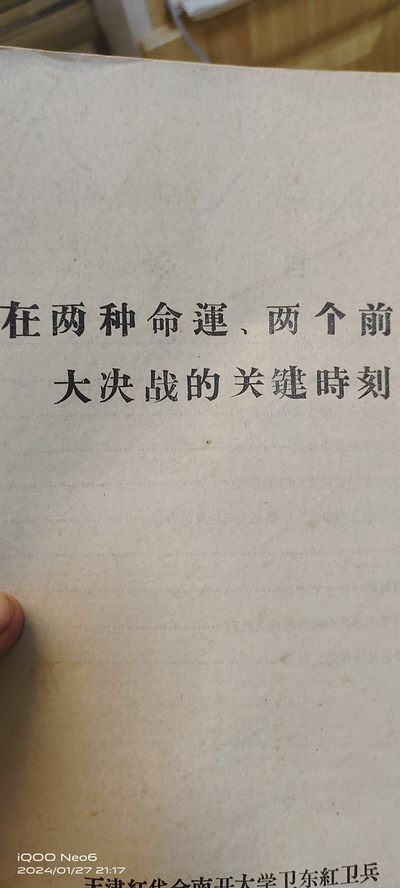 在两种命運、两个前
大决战的关键時刻
天津紅代会南开大学卫东紅卫兵
iQOO Neo6
2024/01/27 21:17